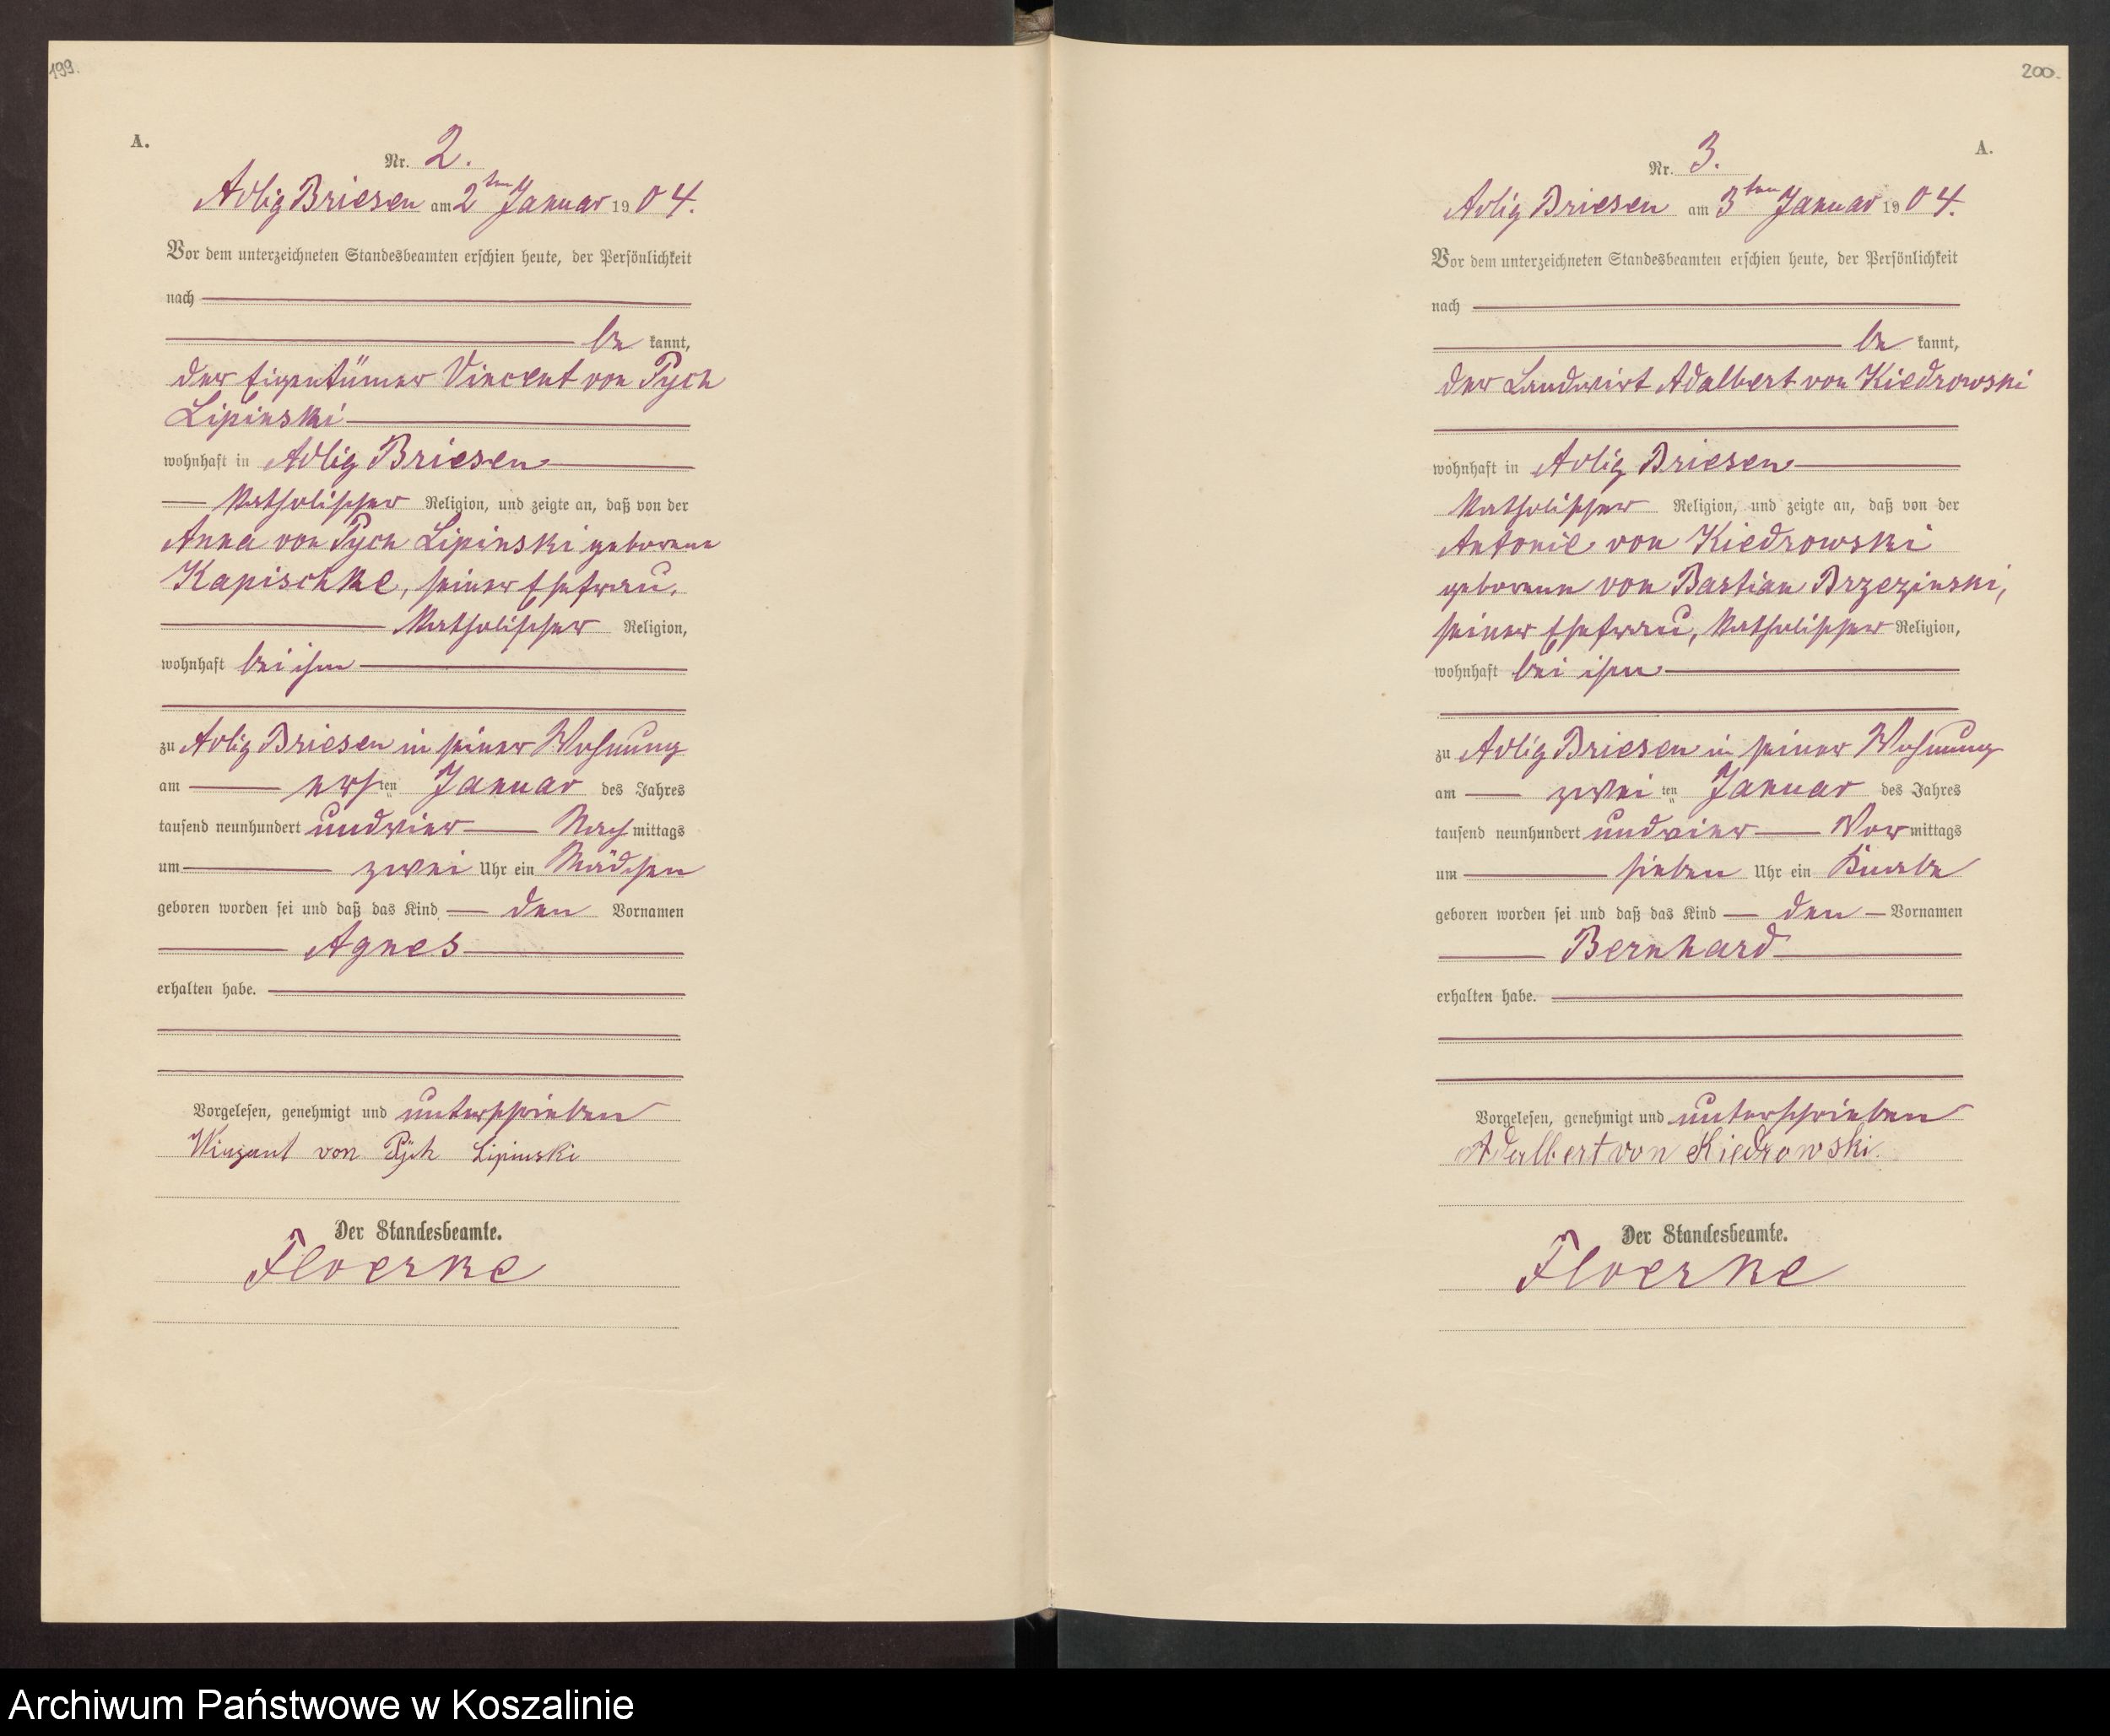 199.
A.
Nr. 2.
Adlig Briesen am 2ten Januar 1904.
Vor dem unterzeichneten Standesbeamten erschien heute, der Persönlichkeit
nach
be kannt,
der Eigentümer Vincent von Pych
Lipinski
wohnhaft in Adlig Briesen
katholischer Religion, und zeigte an, daß von der
Anna von Pych Lipinski geborene
Kapischke, seiner Ehefrau,
katholischer Religion,
wohnhaft bei ihm
zu Adlig Briesen in seiner Wohnung
am ersten Januar des Jahres
tausend neunhundert und vier Nachmittags
um zwei Uhr ein Mädchen
geboren worden sei und daß das Kind den Vornamen
Agnes
erhalten habe.
Vorgelesen, genehmigt und unterschrieben
Winzent von Pÿch Lipinski
Der Standesbeamte.
Floerke
200.
A.
Nr. 3.
Adlig Briesen am 3ten Januar 1904.
Vor dem unterzeichneten Standesbeamten erschien heute, der Persönlichkeit
nach
be kannt,
der Landwirt Adalbert von Kiedrowski
wohnhaft in Adlig Briesen
katholischer Religion, und zeigte an, daß von der
Antonie von Kiedrowski
geborene von Bastian Brzezinski,
seiner Ehefrau, katholischer Religion,
wohnhaft bei ihm
zu Adlig Briesen in seiner Wohnung
am zwei ten Januar des Jahres
tausend neunhundert und vier Vormittags
um sieben Uhr ein Knabe
geboren worden sei und daß das Kind den Vornamen
Bernhard
erhalten habe.
Vorgelesen, genehmigt und unterschrieben
Adalbert von Kiedrowski.
Der Standesbeamte.
Floerke
Archiwum Państwowe w Koszalinie